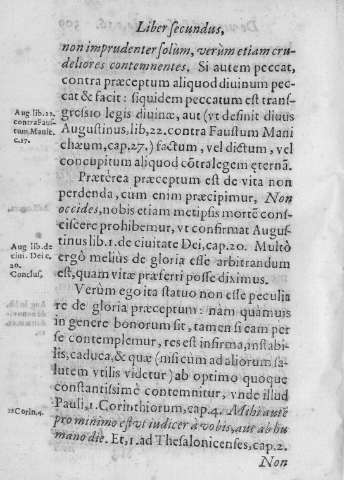 Liber secundus,
non imprudenter solùm, verùm etiam cru-
deliores contemnentes. Si autem peccat,
contra præceptum aliquod diuinum pec-
cat & facit: siquidem peccatum est trans-
gressio legis diuinæ, aut (vt definit diuus
Augustinus, lib, 22. contra Faustum Mani
chæum, cap, 27.) factum, vel dictum, vel
concupitum aliquod cõtra legem eternã.
Aug lib. 22.
contra Faus-
tum Manic.
c. 27.
Prætèrea præceptum est de vita non
perdenda, cum enim præcipimur, Non
occides, nobis etiam metipsis mortẽ cons-
ciscere prohibemur, vt confirmat Augus-
tinus lib. 1. de ciuitate Dei, cap. 20. Multò
ergò melius de gloria esse arbitrandum
est, quam vitæ præferri posse diximus.
Aug lib. de
ciui. Dei c.
20.
Conclus.
Verùm ego ita statuo non esse peculia
re de gloria præceptum: nam quamuis
in genere bonorum sit, tamen si eam per
se contemplemur, res est infirma, instabi-
lis, caduca, & quæ (nisi cùm ad aliorum sa-
lutem vtilis videtur) ab optimo quoque
constantissimè contemnitur, vnde illud
Pauli, 1. Corinthiorum, cap, 4. Mihi autẽ
pro minimo est vt iudicer à vobis, aut ab hu
mano die. Et, 1. ad Thesalonicenses, cap, 2.
1 Corin. 4.
Non